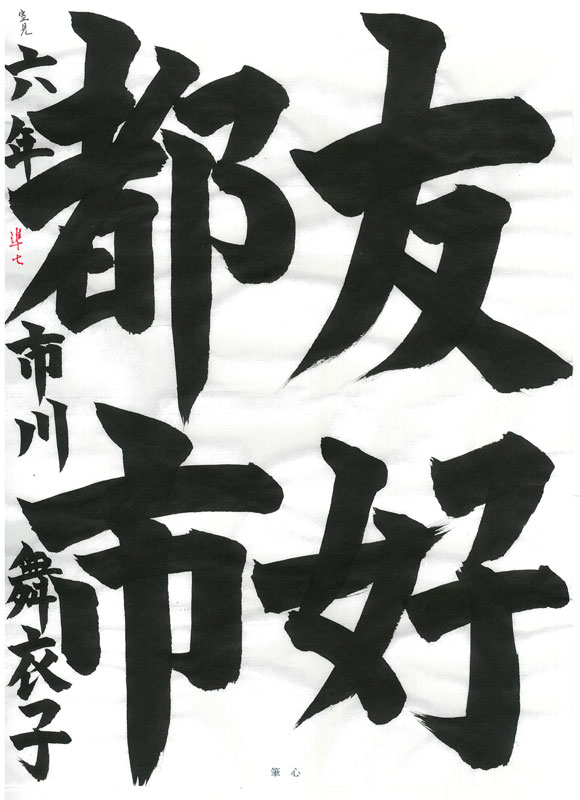 友好
都市
六年 市川 舞衣子
準七
空見
筆心